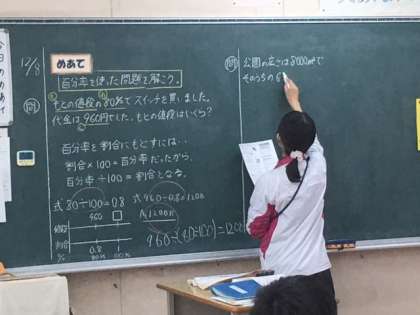 今日のめあて
12/8
めあて
百分率を使った問題を解こう。
問
もとの値段の80%でスイッチを買いました。
代金は960円でした。もとの値段はいくら?
百分率を割合にもどすには…
割合×100=百分率だったから、
百分率÷100=割合となる。
式 80÷100=0.8
式 960÷0.8=1200
A.1200円
960÷(80÷100)=1200
960 □
値段
割合
0.8
%
80% 100%
問
公園の広さは8000m²で
そのうちの